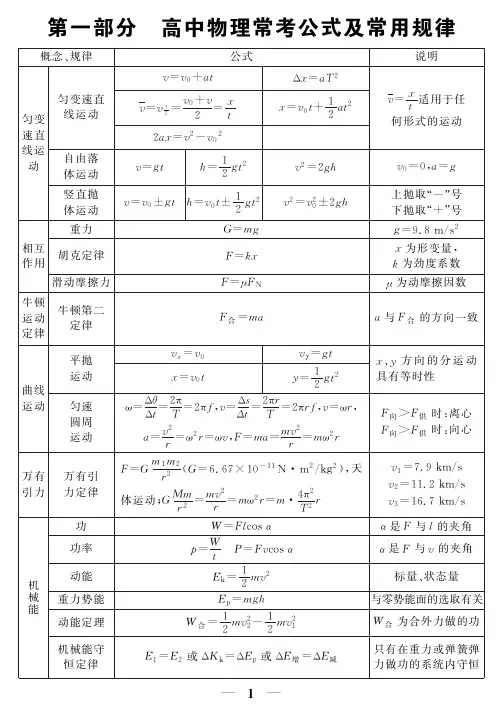 第一部分 高中物理常考公式及常用规律
概念、规律 公式 说明
匀变速直线运动
匀变速直线运动
v=v₀+at Δx=aT²
v̅=v_{t/2}=(v₀+v)/2=x/t x=v₀t+1/2at²
2ax=v²-v₀²
v̅=x/t适用于任何形式的运动
自由落体运动 v=gt h=1/2gt² v²=2gh v₀=0,a=g
竖直抛体运动 v=v₀±gt h=v₀t±1/2gt² v²=v₀²±2gh 上抛取“-”号
下抛取“+”号
相互作用
重力 G=mg g=9.8 m/s²
胡克定律 F=kx x为形变量,
k为劲度系数
滑动摩擦力 F=μF_N μ为动摩擦因数
牛顿运动定律
牛顿第二定律 F合=ma a与F合的方向一致
曲线运动
平抛运动
vₓ=v₀ v_y=gt
x=v₀t y=1/2gt²
x、y方向的分运动具有等时性
匀速圆周运动
ω=Δθ/Δt=2π/T=2πf,v=Δs/Δt=2πr/T=2πrf,v=ωr,
a=v²/r=ω²r=ωv,F=ma=mv²/r=mω²r
F向>F供时:离心
F向>F供时:向心
万有引力
万有引力定律
F=G m₁m₂/r²(G=6.67×10⁻¹¹N·m²/kg²),天
体运动:G Mm/r²=mv²/r=mω²r=m·4π²/T² r
v₁=7.9 km/s
v₂=11.2 km/s
v₃=16.7 km/s
机械能
功 W=Flcos α α是F与l的夹角
功率 p=W/t P=Fvcos α α是F与v的夹角
动能 Eₖ=1/2mv² 标量、状态量
重力势能 Eₚ=mgh 与零势能面的选取有关
动能定理 W合=1/2mv₂²-1/2mv₁² W合为合外力做的功
机械能守恒定律 E₁=E₂或ΔKₖ=ΔEₚ或ΔE增=ΔE减 只有在重力或弹簧弹
力做功的系统内守恒
— 1 —